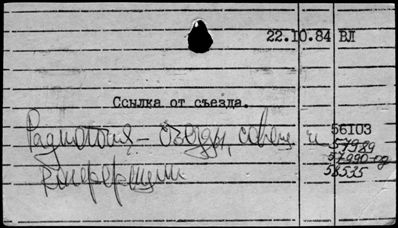 22.10.84 ВЛ
Ссылка от съезда.
Радиология - съезды, совещ. и 56103
57989
конференции 57990-од
58535